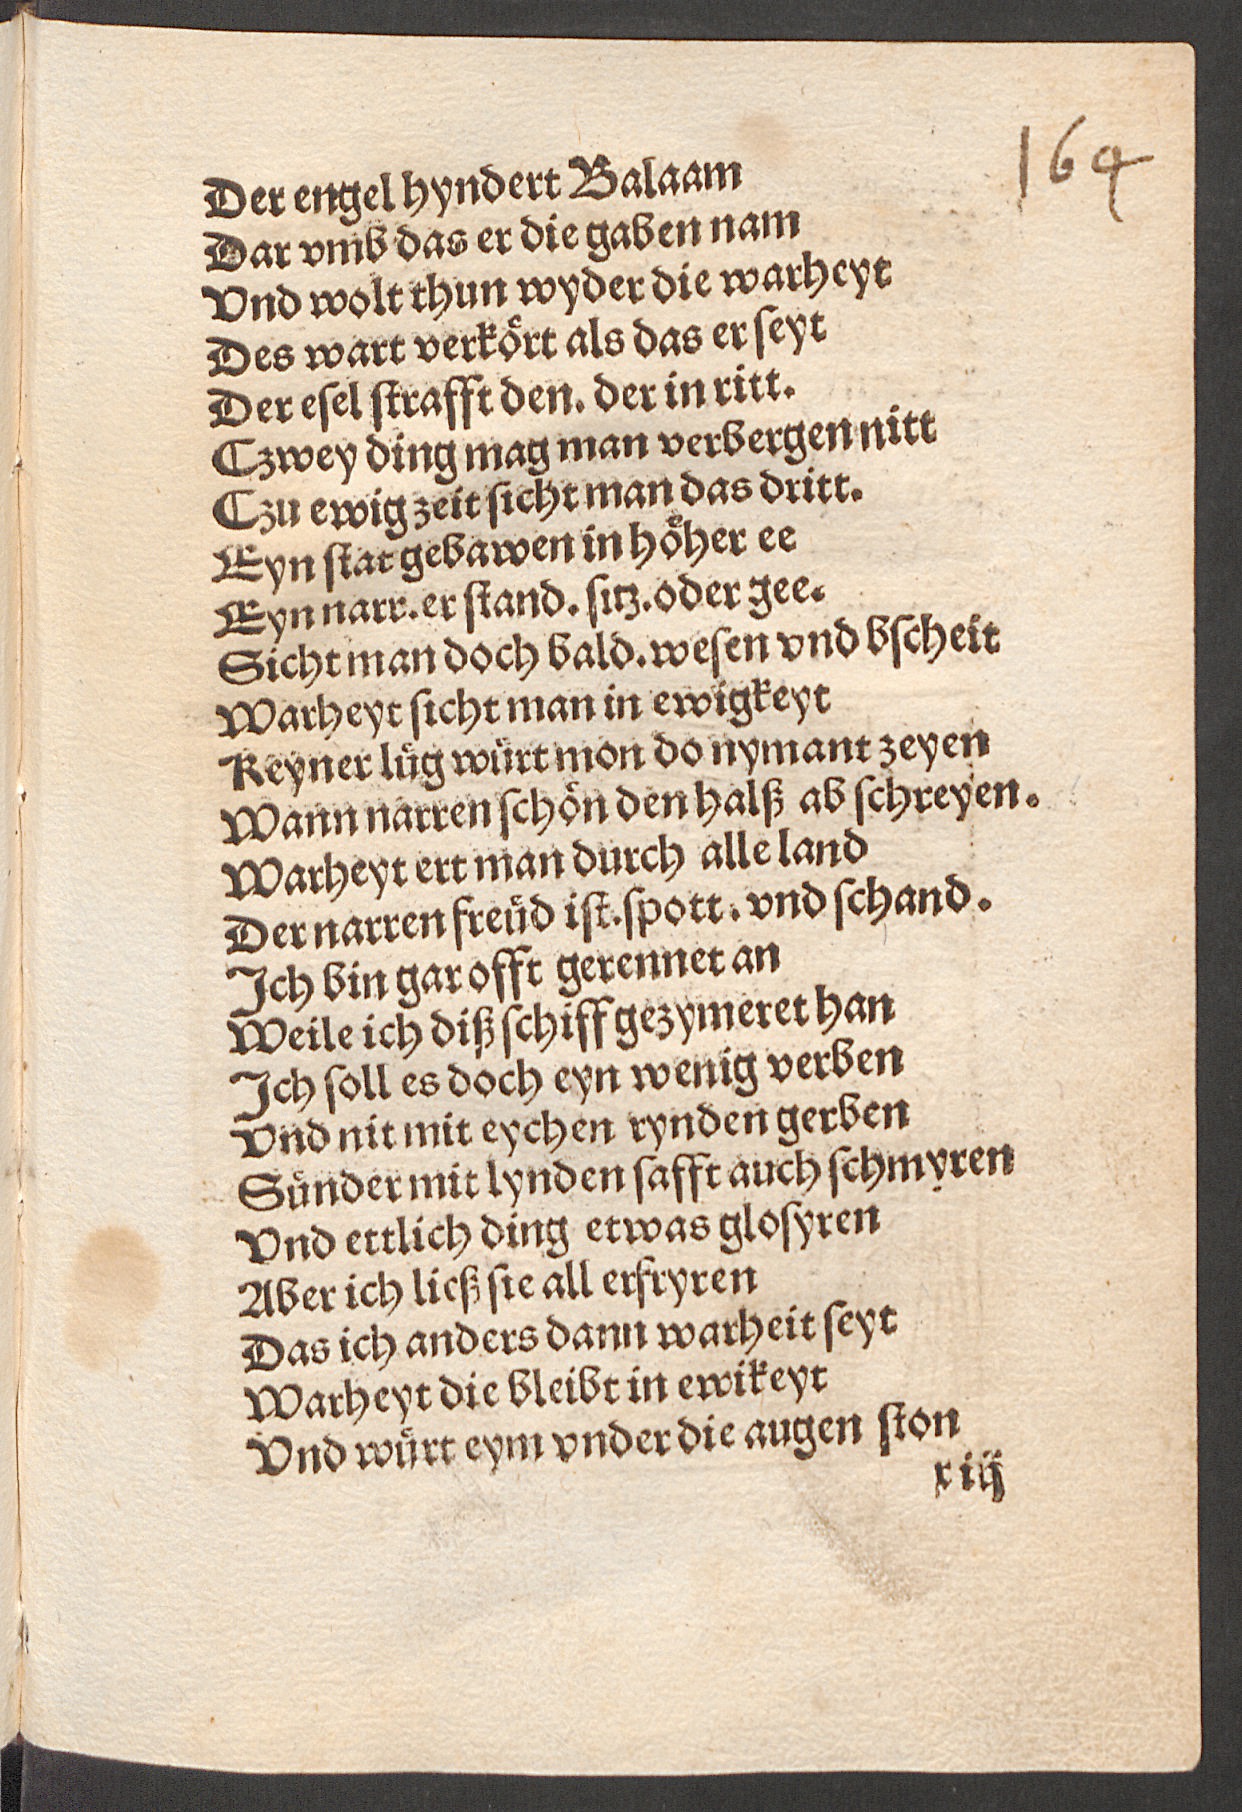 164
Der engel hyndert Balaam
Dar vmb das er die gaben nam
Vnd wolt thun wyder die warheyt
Des wart verkoͤrt als das er ſeyt
Der eſel ſtrafft den. der in ritt.
Czwey ding mag man verbergen nitt
Czu ewig zeit ſicht man das dritt.
Eyn ſtat gebawen in hoͤher ee
Eyn narr. er ſtand. ſitz. oder gee.
Sicht man doch bald. weſen vnd bſcheit
Warheyt ſicht man in ewigkeyt
Keyner luͤg wuͤrt mon do nymant zeyen
Wann narren ſchoͤn den halß ab ſchreyen.
Warheyt ert man durch alle land
Der narren freuͤd iſt. ſpott. vnd ſchand.
Ich bin gar offt gerennet an
Weile ich diß ſchiff gezymeret han
Ich ſoll es doch eyn wenig verben
Vnd nit mit eychen rynden gerben
Suͤnder mit lynden ſafft auch ſchmyren
Vnd ettlich ding etwas gloſyren
Aber ich ließ ſie all erfryren
Das ich anders dann warheit ſeyt
Warheyt die bleibt in ewikeyt
Vnd wuͤrt eym vnder die augen ſton
x iij